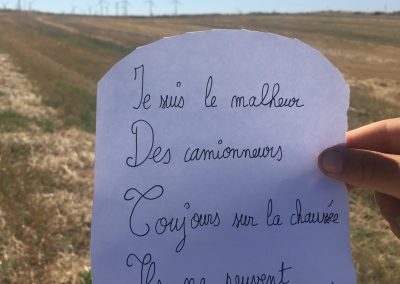 Je suis le malheur
Des camionneurs
Toujours sur la chaussée
Ils ne peuvent